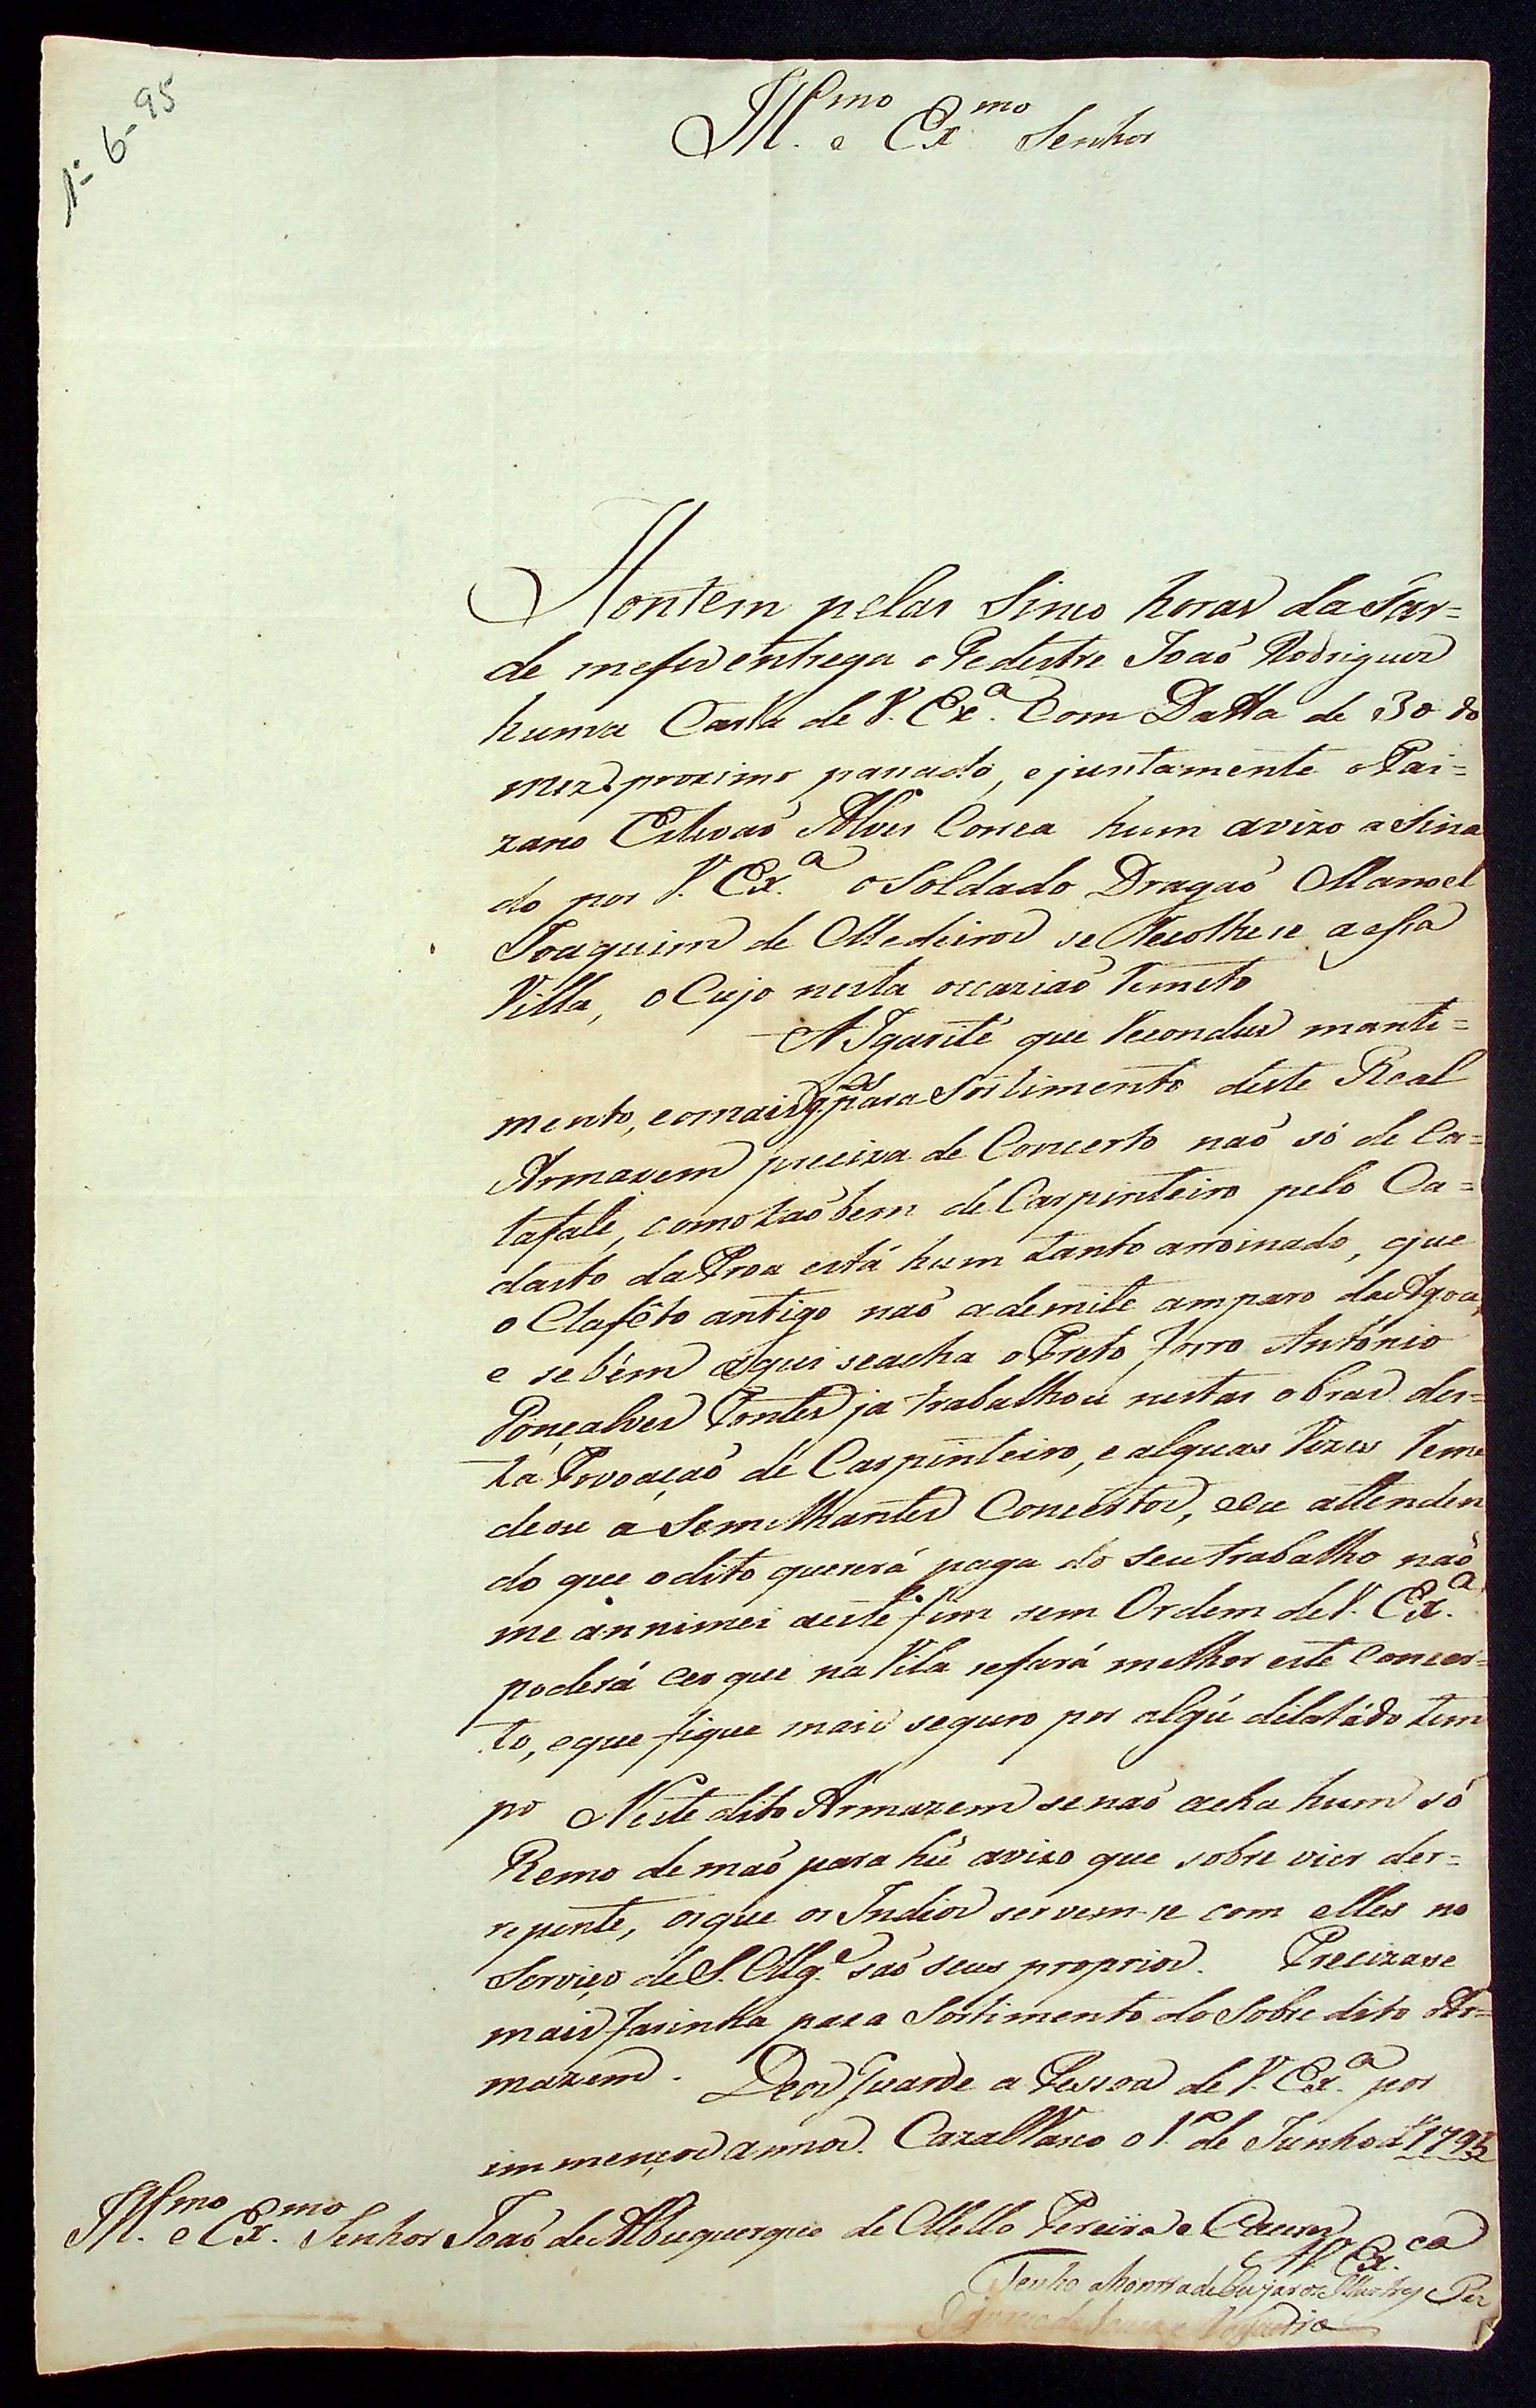 1º-6-95
Ill.mo e Ex.mo Senhor
Hontem pelas Sinco horas da Tar=
de mefes entrega o Pedestre Joaõ Rodrigues
huma Carta de V. Ex.a Com Datta de 30 do
mez proximo passado, e juntamente o Pai=
zano Estevaõ Alves Correa hum avizo a sina
do por V. Ex.a o Soldado Dragaõ Manoel
Joaquim de Medeiros se Recolhese a essa
Villa, o Cujo nesta occaziaõ Remeto
A Igarité que Recondus manti=
mento, e o mais para Sortimento deste Real
Armazem preciza de Concerto naõ só de Ca=
lafate, como taõ bem de Carpinteiro pelo Ca=
dasto da Proa está hum tanto arroinado, que
o Clafêto antigo naõ ademite amparo da Agoa,
e se bém aqui seacha o Preto forro António
Gonçalves Pontes ja trabalhou nestas obras des=
ta Povoaçaõ de Carpinteiro, e alguas Vezes Reme
deou a Semilhantes Concertos, eu attenden
do que o dito quererá paga do seu trabalho naõ
me annimei a este fim sem Ordem de V. Ex.a
poderá ser que na Vila sefará melhor este Concer=
to, e que fique mais seguro por algú dilatádo tem
po Neste dito Armazem se naõ acha hum só
Remo de maõ para hú avizo que sobre vier der=
repente, os que os Indios servem-se com elles no
Serviço de S. Mg.e saõ seus proprios. Precizase
mais farinha para Sortimento do Sobre dito Ar=
mazem. Deos Guarde a Pessoa de V. Ex.a por
immenços annos. Cazal Vasco o 1.o de Junho de 1795
Ill.mo e Ex.mo Senhor Joaõ de Albuquerque de Mello Pereira e Caceres
V. Ex.ca
Tenho a honrra de